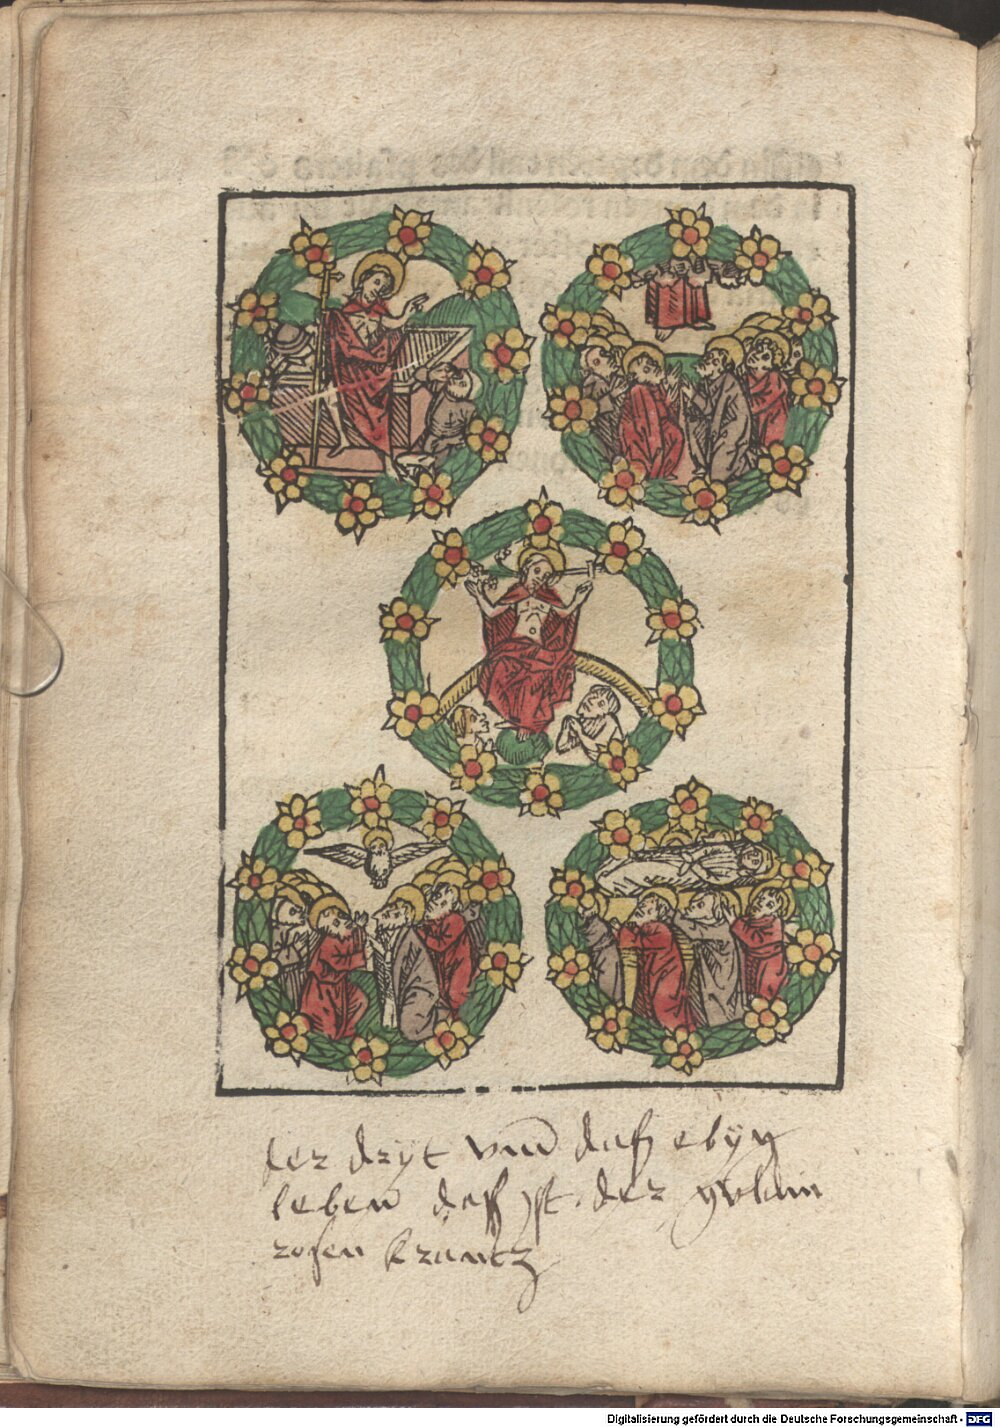 der dryt vnd daß ebyg
leben daß yst. der gulain
rosen krantz
Digitalisierung gefördert durch die Deutsche Forschungsgemeinschaft - DFG